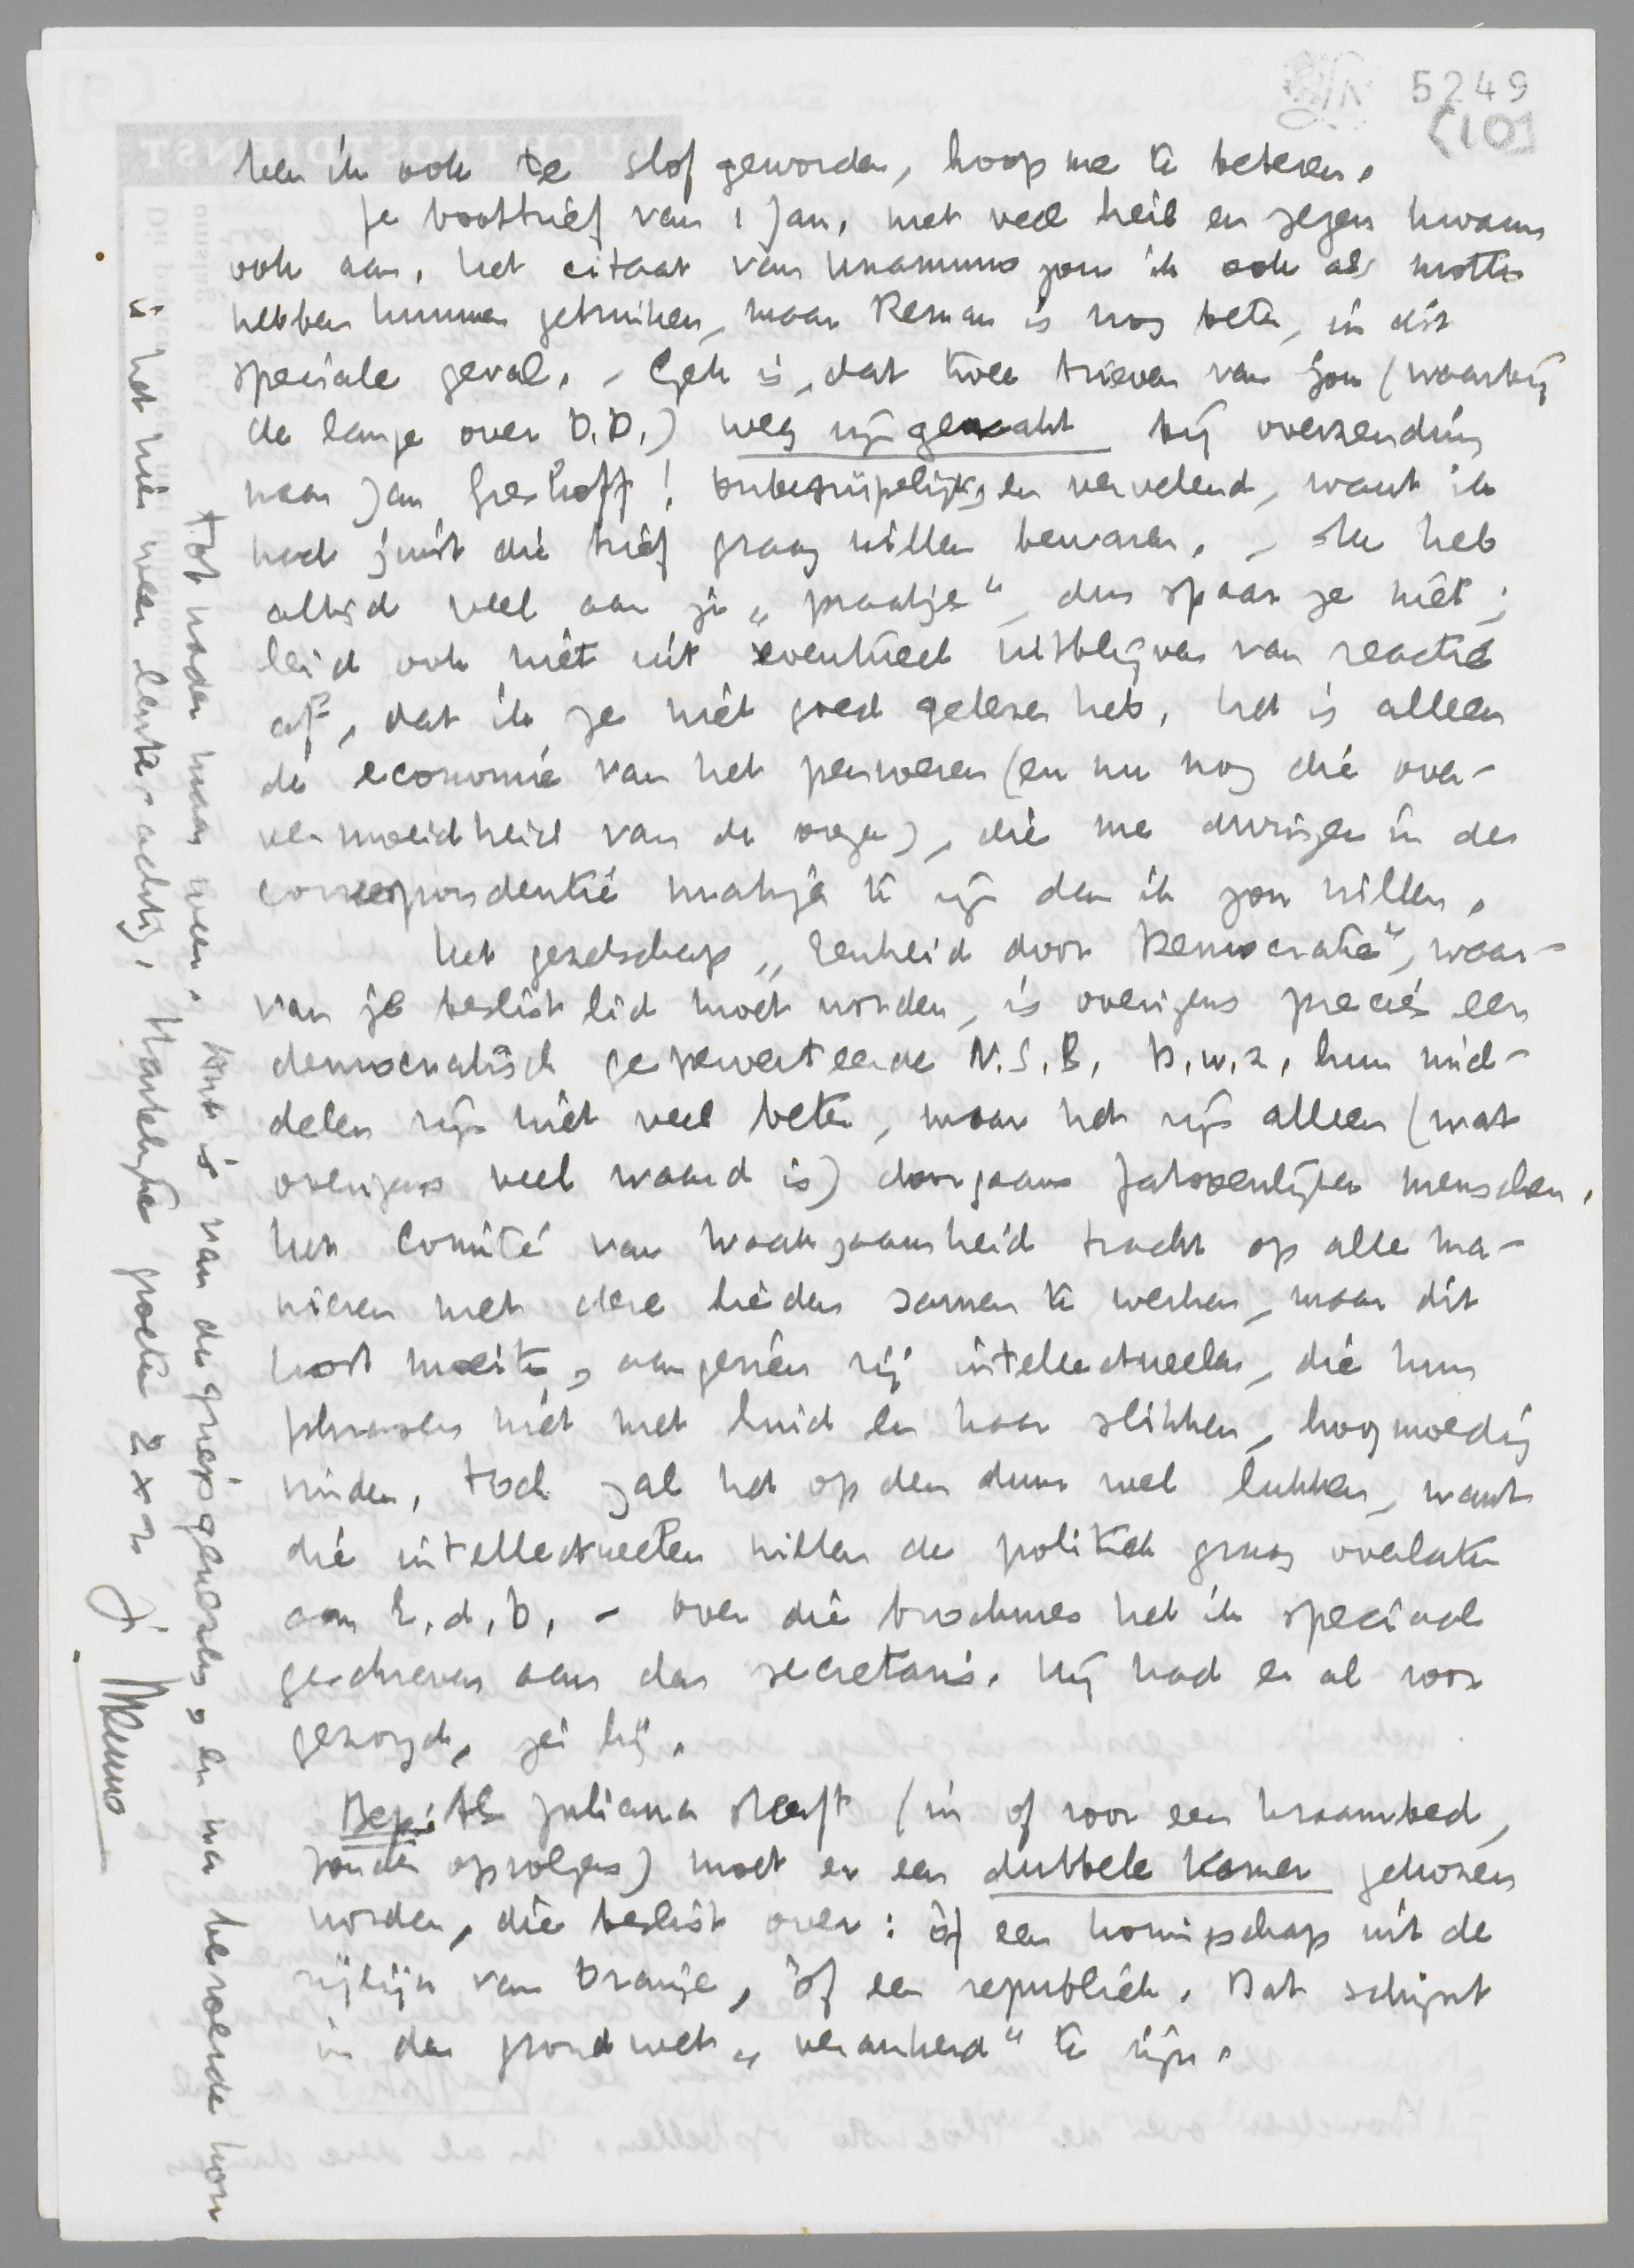 5249
(10)
ben ik ook te slof geworden, hoop me te beteren.
Je bootbrief van 1 Jan. met veel heil en zegen kwam
ook aan. Het citaat van Unamuno zou ik ook als motto
hebben kunnen gebruiken, maar Renan is nog beter, in dit
speciale geval. - Gek is, dat twee brieven van jou (waarbij
de lange over D.D.) weg zijn geraakt bij overzending
naar Jan Greshoff! Onbegrijpelijk, en vervelend, want ik
had juist die brief graag willen bewaren. - Ik heb
altijd veel aan je „praatjes", dus spaar ze niet;
leid ook niet uit eventueel uitblijven van reactie
af, dat ik ze niet goed gelezen heb. Het is alleen
de economie van het penvoeren (en nu nog die over-
vermoeidheid van de ogen), die me dwingen in de
correspondentie matiger te zijn dan ik zou willen.
Het gezelschap „Eenheid door Democratie", waar-
van je beslist lid moet worden, is overigens precies een
democratisch geperverteerde N.S.B. D.w.z. hun mid-
delen zijn niet veel beter, maar het zijn alleen (wat
overigens veel waard is) doorgaans fatsoenlijker menschen.
Het Comité van Waakzaamheid tracht op alle ma-
nieren met deze lieden samen te werken, maar dit
kost moeite, aangezien zij intellectueelen, die hun
phrasen niet met huid en haar slikken, hoogmoedig
vinden. Toch zal het op den duur wel lukken, want
die intellectueelen willen de politiek graag overlaten
aan E.d.D. - Over die brochures heb ik speciaal
geschreven aan den secretaris. Hij had er al voor
gezorgd, zei hij.
Bep: Als Juliana sterft (in of voor een kraambed,
zonder opvolgers) moet er een dubbele Kamer gekozen
worden, die beslist over: òf een koningschap uit de
zijlijn van Oranje, òf een republiek. Dat schijnt
in de grondwet „verankerd" te zijn.
Tot nader maar weer. Ant is van de griep genezen, en na beroerde kou
is het hier weer lente-achtig. Hartelijke groeten 2 x 2
je Menno